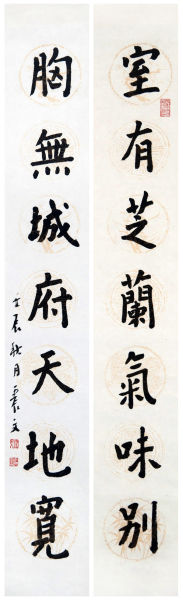 室有芝蘭氣味別
胸無城府天地寬
壬辰秋月